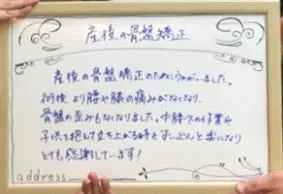 産後の骨盤矯正
産後の骨盤矯正のためにうかがいました。
術後より腰や膝の痛みがなくなり、
骨盤の歪みもなくなりました。中腰での作業や
子供を抱えて立ち上がる時もずいぶんと楽になり
とても感謝しています!
address